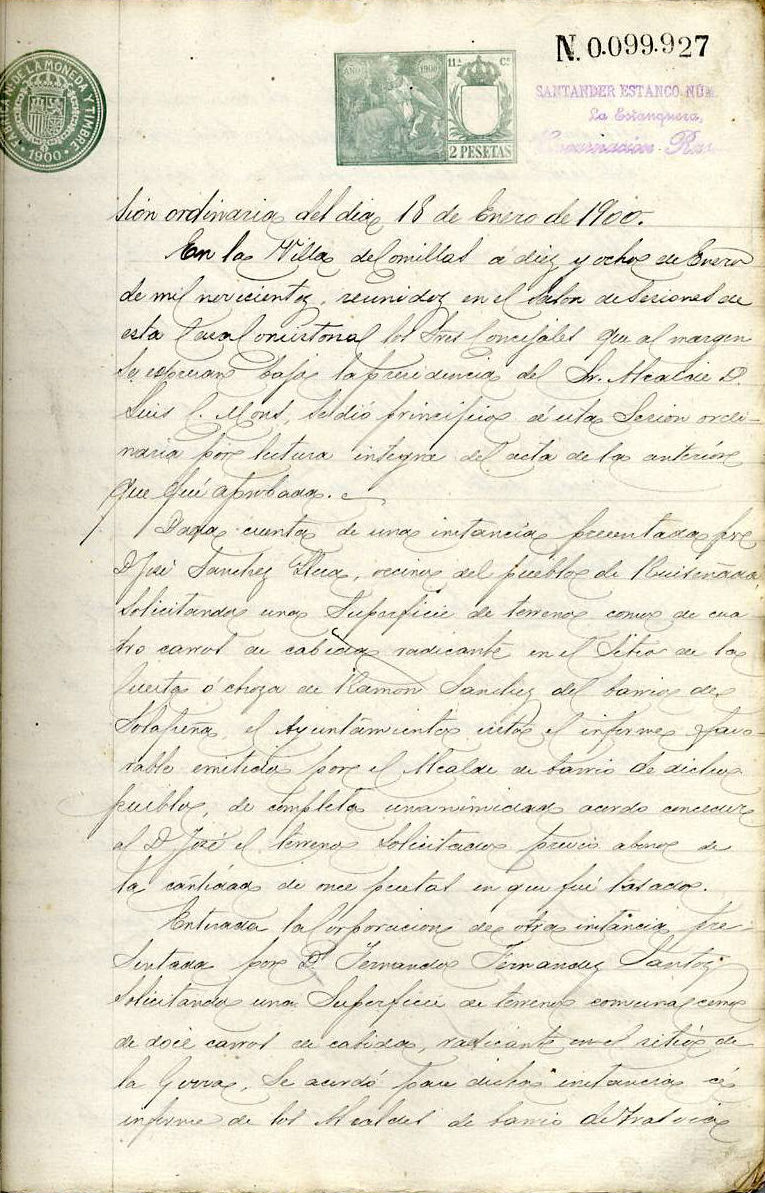 FABRICA NL. DE LA MONEDA Y TIMBRE
1900
AÑO 1900
11ª Cª
2 PESETAS
N. 0.099.927
SANTANDER ESTANCO NÚM.
La Estanquera,
sión ordinaria del dia 18 de Enero de 1900.
En la Villa de Comillas á diez y ocho de Enero
de mil novecientos, reunidos en el Salon de Sesiones de
esta Casa Consistorial los Sres Concejales que al margen
se espresan bajo la presidencia del Sr. Alcalde D.
Luis C. Mons, se dió principio á esta Sesion ordi-
naria por lectura integra del acta de la anterior
que fué aprobada.
Dada cuenta de una instancia presentada por
D José Sanchez, vecino del pueblo de Ruiseñada,
solicitando una Superficie de terreno como de cua-
tro carros de cabida radicante en el Sitio de la
ó choza de Ramon Sanchez del barrio de
Solapeña, el Ayuntamiento visto el informe favo-
rable emitido por el Alcalde de barrio de dicho
pueblo, de completa unanimidad acordó conceder
al D José el terreno solicitado previo abono de
la cantidad de once pesetas en que fué tasado.
Enterada la Corporacion de otra instancia pre-
sentada por Dn Fernando Fernandez Santos
solicitando una Superficie de terreno comunal como
de doce carros de cabida, radicante en el sitio de
la Gerra, Se acordó pase dicha instancia á
informe de los Alcaldes de barrio de Trasvia